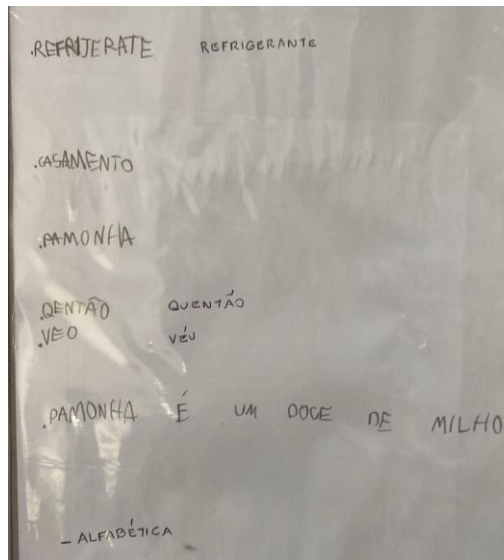 .REFRIJERATE REFRIGERANTE
.CASAMENTO
.PAMONHA
.QENTÃO QUENTÃO
.VEO VÉU
.PAMONHA É UM DOCE DE MILHO
- ALFABÉTICA